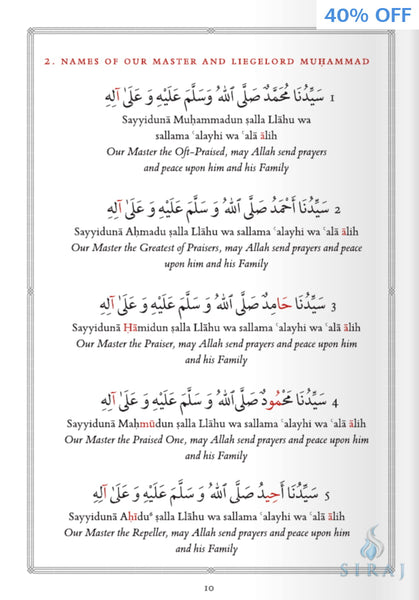 40% OFF
2. NAMES OF OUR MASTER AND LIEGELORD MUḤAMMAD
١ سَيِّدُنَا مُحَمَّدٌ صَلَّى ٱللهُ وَسَلَّمَ عَلَيْهِ وَ عَلَىٰ آلِهِ
Sayyidunā Muḥammadun ṣalla Llāhu wa
sallama ʿalayhi wa ʿalā ālih
Our Master the Oft-Praised, may Allah send prayers
and peace upon him and his Family
٢ سَيِّدُنَا أَحْمَدُ صَلَّى ٱللهُ وَ سَلَّمَ عَلَيْهِ وَ عَلَىٰ آلِهِ
Sayyidunā Aḥmadu ṣalla Llāhu wa sallama ʿalayhi wa ʿalā ālih
Our Master the Greatest of Praisers, may Allah send prayers and peace
upon him and his Family
٣ سَيِّدُنَا حَامِدٌ صَلَّى ٱللهُ وَ سَلَّمَ عَلَيْهِ وَ عَلَىٰ آلِهِ
Sayyidunā Ḥāmidun ṣalla Llāhu wa sallama ʿalayhi wa ʿalā ālih
Our Master the Praiser, may Allah send prayers and peace upon him
and his Family
٤ سَيِّدُنَا مَحْمُودٌ صَلَّى ٱللهُ وَ سَلَّمَ عَلَيْهِ وَ عَلَىٰ آلِهِ
Sayyidunā Maḥmūdun ṣalla Llāhu wa sallama ʿalayhi wa ʿalā ālih
Our Master the Praised One, may Allah send prayers and peace upon him
and his Family
٥ سَيِّدُنَا أَحِيدُ صَلَّى ٱللهُ وَ سَلَّمَ عَلَيْهِ وَ عَلَىٰ آلِهِ
Sayyidunā Aḥīdu⁶ ṣalla Llāhu wa sallama ʿalayhi wa ʿalā ālih
Our Master the Repeller, may Allah send prayers and peace upon him
and his Family
SIRAJ
10